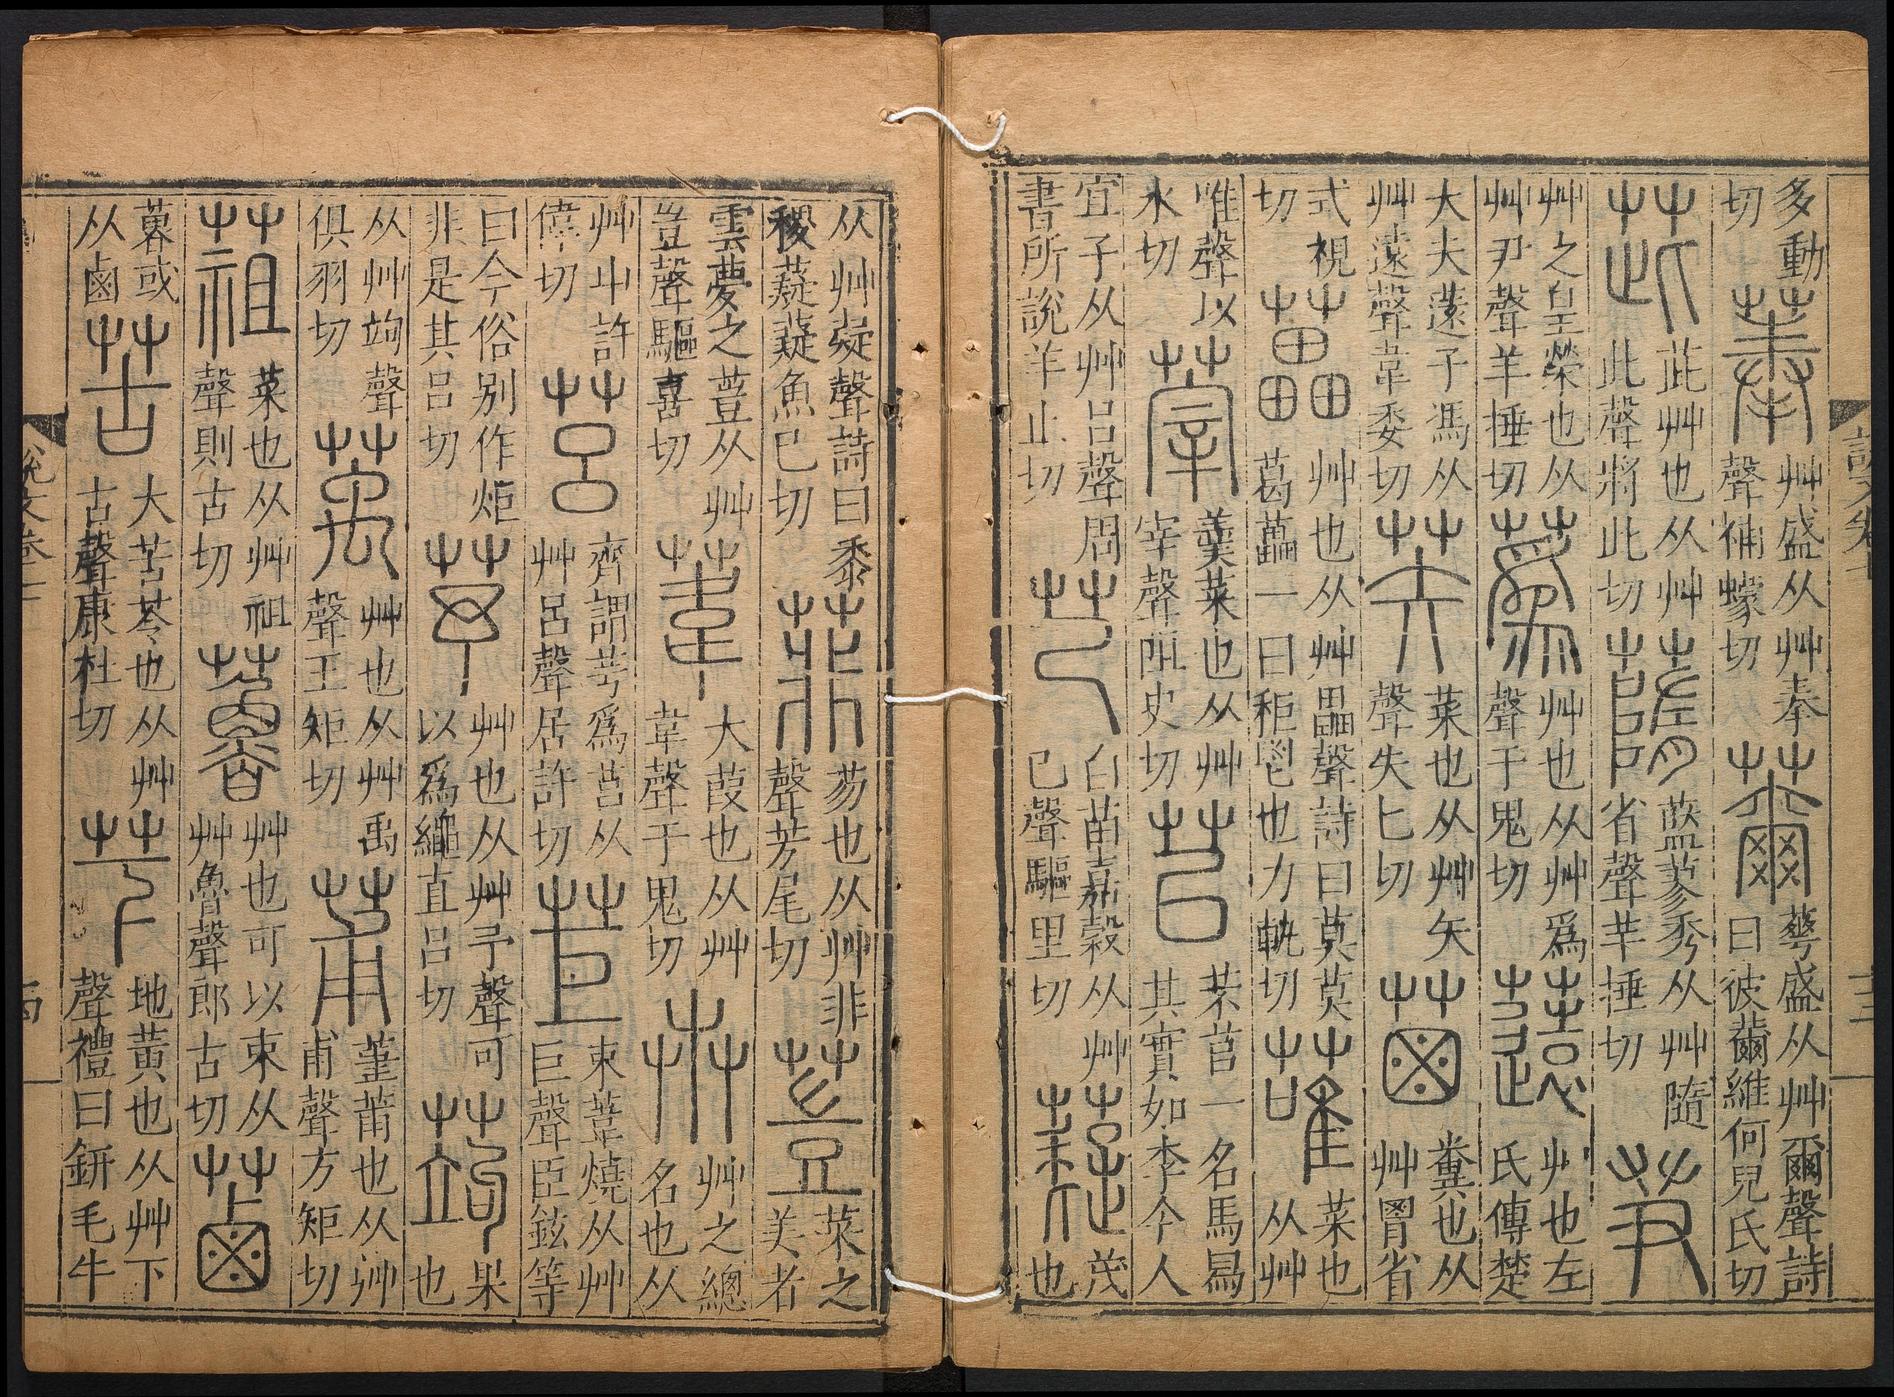 多動
切
菶
艸盛从艸奉
聲補蠓切
薾
華盛从艸爾聲詩
曰彼薾維何兒氏切
茈
茈艸也从艸
此聲將此切
藍蓼秀从艸隨
省聲羊捶切
芛
艸之皇榮也从
艸尹聲羊捶切
蒍
艸也从艸爲
聲于鬼切
薳
艸也左
氏傳楚
大夫薳子馮从
艸遠聲韋委切
菜也从艸矢
聲失匕切
糞也从
艸胃省
式視
切
藟
艸也从艸畾聲詩曰莫莫
葛藟一曰秬鬯也力軌切
蓶
菜也
从艸
唯聲以
水切
羹菜也从艸
宰聲阻史切
苢
芣苢一名馬舄
其實如李令人
宜子从艸㠯聲周
書所說羊止切
芑
白苗嘉穀从艸
己聲驅里切
薿
茂
也
从艸疑聲詩曰黍
稷薿薿魚已切
菲
芴也从艸非
聲芳尾切
菜之
美者
雲夢之荳从艸
豈聲驅喜切
葦
大葭也从艸
韋聲于鬼切
卉
艸之總
名也从
艸屮許
偉切
莒
齊謂芌爲莒从
艸呂聲居許切
苣
束葦燒从艸
巨聲臣鉉等
曰今俗别作炬
非是其呂切
芧
艸也从艸予聲可
以爲繩直呂切
蒟
果
也
从艸竘聲
俱羽切
萭
艸也从艸禹
聲王矩切
莆
萐莆也从艸
甫聲方矩切
菜也从艸祖
聲則古切
艸也可以束从
艸魯聲郎古切
蓾
或
从鹵
苦
大苦苓也从艸
古聲康杜切
芐
地黃也从艸下
聲禮曰鈃毛牛